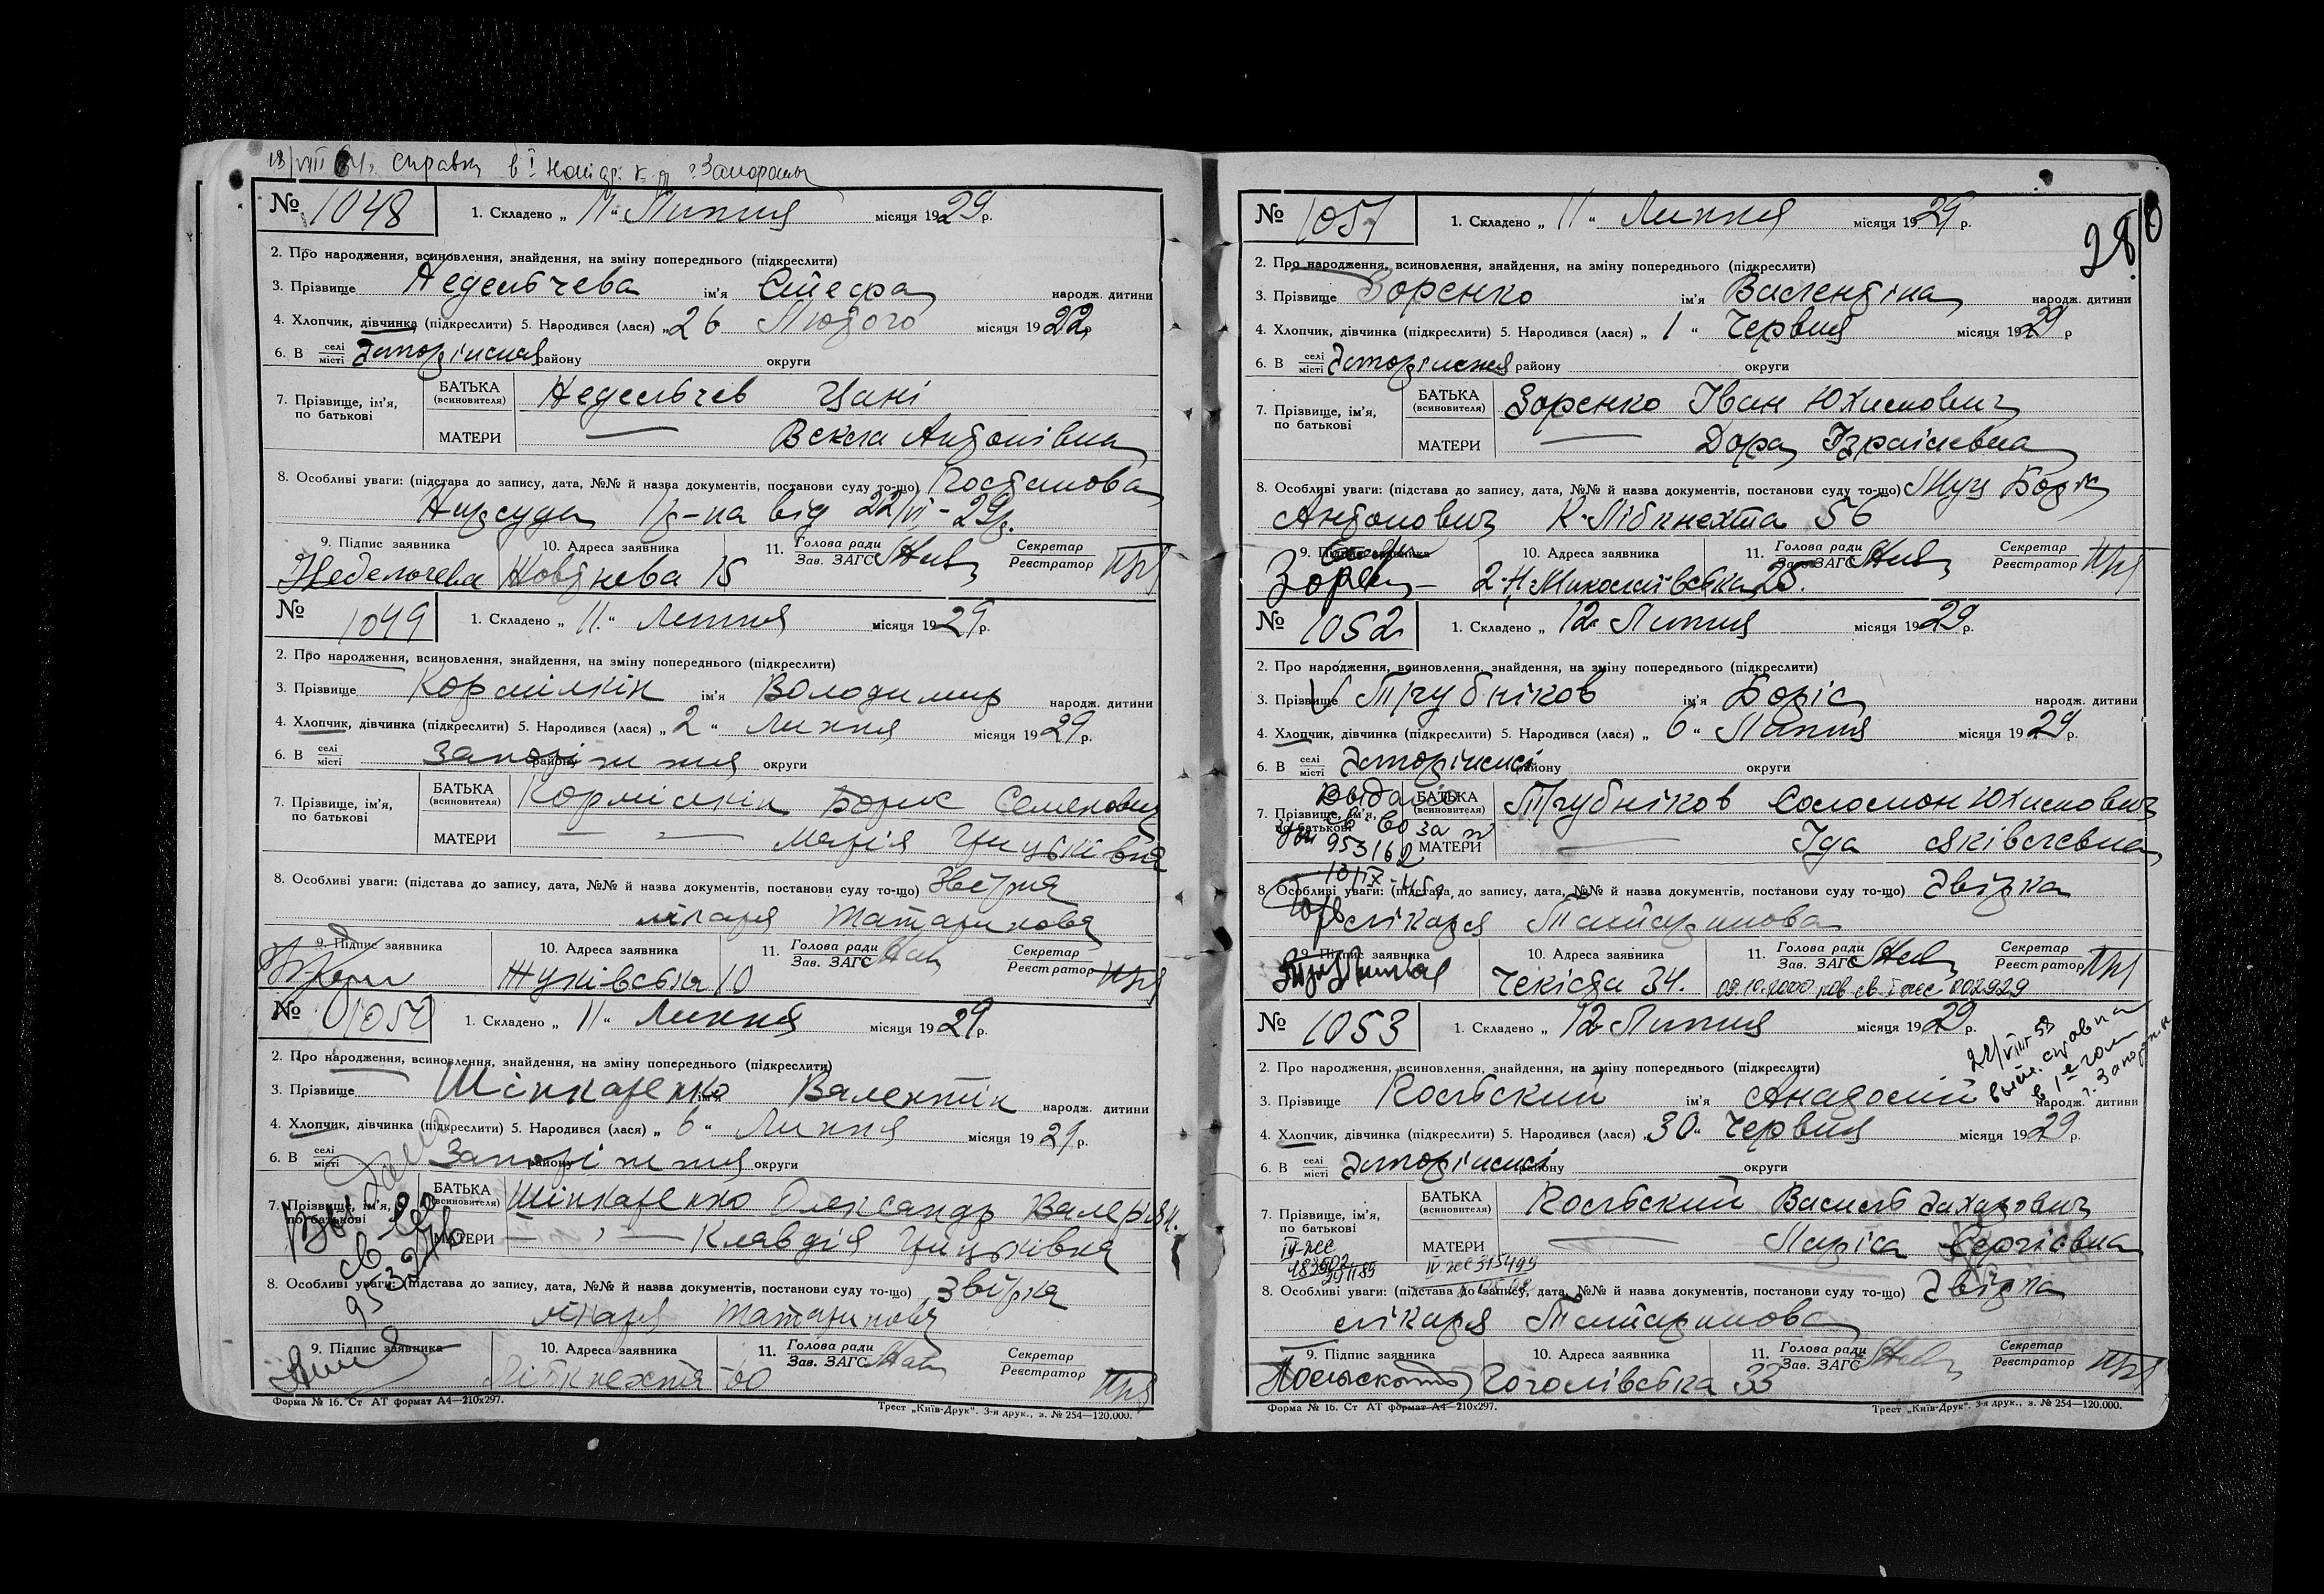 18/VIII 64. справка в I
№ 1048
1. Складено „ 11 “ Липня місяця 1929 р.
2. Про народження, всиновлення, знайдення, на зміну попереднього (підкреслити)
3. Прізвище Недельчева ім'я народж. дитини
4. Хлопчик, дівчинка (підкреслити) 5. Народився (лася) „ 26 Лютого місяця 1922 р.
6. В селі місті Запоріжжя району округи
7. Прізвище, ім'я, по батькові
БАТЬКА (всиновителя) Недельчев Цані
МАТЕРИ — Векла Антонівна
8. Особливі уваги: (підстава до запису, дата, №№ й назва документів, постанови суду то-що) Постанова
Нарсуда від 22/VI-29р.
9. Підпис заявника 10. Адреса заявника 11. Голова ради Зав. ЗАГС Секретар Реєстратор
Недельчева 15
№ 1049
1. Складено „ 11 “ Липня місяця 1929 р.
2. Про народження, всиновлення, знайдення, на зміну попереднього (підкреслити)
3. Прізвище Кормілкін ім'я Володимир народж. дитини
4. Хлопчик, дівчинка (підкреслити) 5. Народився (лася) „ 2 “ Липня місяця 1929 р.
6. В селі місті Запоріжжя району округи
7. Прізвище, ім'я, по батькові
БАТЬКА (всиновителя) Кормілкін Борис Семенович
МАТЕРИ — " — Марія Грицьківна
8. Особливі уваги: (підстава до запису, дата, №№ й назва документів, постанови суду то-що) Звістка
лікаря Татаринова
9. Підпис заявника 10. Адреса заявника 11. Голова ради Зав. ЗАГС Секретар Реєстратор
Жуківська 10
№ 1050
1. Складено „ 11 “ Липня місяця 1929 р.
2. Про народження, всиновлення, знайдення, на зміну попереднього (підкреслити)
3. Прізвище Шінкаренко ім'я Валентін народж. дитини
4. Хлопчик, дівчинка (підкреслити) 5. Народився (лася) „ 6 “ Липня місяця 1929 р.
6. В селі місті Запоріжжя району округи
7. Прізвище, ім'я, по батькові
БАТЬКА (всиновителя) Шінкаренко Олександр Валеріян.
МАТЕРИ — " — Клавдія Грицьківна
8. Особливі уваги: (підстава до запису, дата, №№ й назва документів, постанови суду то-що) Звістка
лікаря Татаринова
9. Підпис заявника 10. Адреса заявника 11. Голова ради Зав. ЗАГС Секретар Реєстратор
Лібкнехта 60
Форма № 16. Ст АТ формат А4—210х297. Трест „Київ-Друк“. 3-я друк., з. № 254—120.000.
280
№ 1051
1. Складено „ 11 “ Липня місяця 1929 р.
2. Про народження, всиновлення, знайдення, на зміну попереднього (підкреслити)
3. Прізвище Зоренко ім'я Валентіна народж. дитини
4. Хлопчик, дівчинка (підкреслити) 5. Народився (лася) „ 1 “ Червня місяця 1929 р
6. В селі місті Запоріжжя району округи
7. Прізвище, ім'я, по батькові
БАТЬКА (всиновителя) Зоренко Іван Юхимович
МАТЕРИ — Дора Ізраілевна
8. Особливі уваги: (підстава до запису, дата, №№ й назва документів, постанови суду то-що)
Антонович К-Лібкнехта 56
9. Підпис заявника 10. Адреса заявника 11. Голова ради Зав. ЗАГС Секретар Реєстратор
2-Н-Миколаївська 25.
№ 1052
1. Складено „ 12 Липня місяця 1929 р.
2. Про народження, всиновлення, знайдення, на зміну попереднього (підкреслити)
3. Прізвище Трубніков ім'я Боріс народж. дитини
4. Хлопчик, дівчинка (підкреслити) 5. Народився (лася) „ 6 “ Липня місяця 1929 р.
6. В селі місті Запоріжжі району округи
7. Прізвище, ім'я, по батькові
БАТЬКА (всиновителя) Трубніков Соломон Юхимович
МАТЕРИ — Іда Яківлевна
953162
8. Особливі уваги: (підстава до запису, дата, №№ й назва документів, постанови суду то-що) Звістка
лікаря Татаринова
9. Підпис заявника 10. Адреса заявника 11. Голова ради Зав. ЗАГС Секретар Реєстратор
Чекіста 34.
№ 1053
1. Складено „ 12 Липня місяця 1929 р.
22/VIII 53 справка
2. Про народження, всиновлення, знайдення, на зміну попереднього (підкреслити)
3. Прізвище Косьбский ім'я Анатолій народж. дитини
4. Хлопчик, дівчинка (підкреслити) 5. Народився (лася) „ 30 “ Червня місяця 1929 р.
6. В селі місті Запоріжжі району округи
7. Прізвище, ім'я, по батькові
БАТЬКА (всиновителя) Василь Захарович
МАТЕРИ — Лариса Сергіівна
8. Особливі уваги: (підстава до запису, дата, №№ й назва документів, постанови суду то-що) Звістка
лікаря Татаринова
9. Підпис заявника 10. Адреса заявника 11. Голова ради Зав. ЗАГС Секретар Реєстратор
Гоголівська 33
Форма № 16. Ст АТ формат А4—210х297. Трест „Київ-Друк“. 3-я друк., з. № 254—120.000.